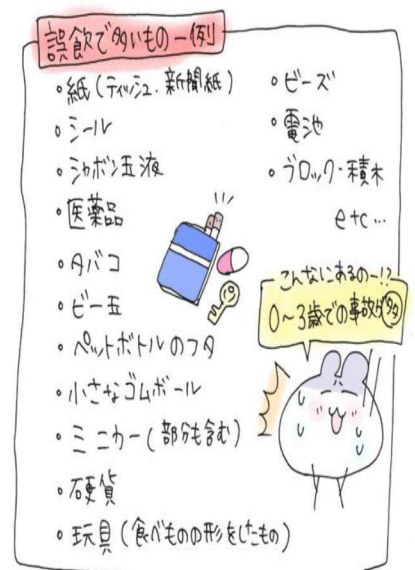 誤飲で多いもの一例
・紙(ティッシュ・新聞紙)
・シール
・シャボン玉液
・医薬品
・タバコ
・ビー玉
・ペットボトルのフタ
・小さなゴムボール
・ミニカー(部分も含む)
・硬貨
・玩具(食べものの形をしたもの)
・ビーズ
・電池
・ブロック・積木
etc…
こんなにあるのー!?
0〜3歳での事故が多